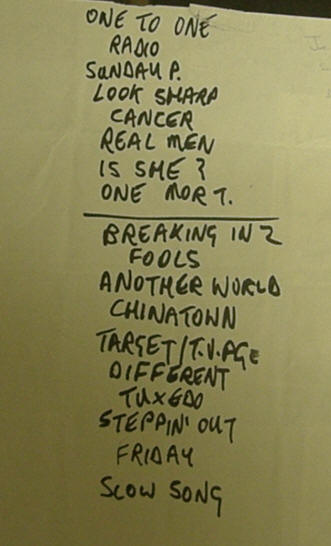 ONE TO ONE
RADIO
SUNDAY P.
LOOK SHARP
CANCER
REAL MEN
IS SHE ?
ONE MOR T.
BREAKING IN 2
FOOLS
ANOTHER WORLD
CHINATOWN
TARGET/T.V. AGE
DIFFERENT
TUXEDO
STEPPIN' OUT
FRIDAY
SLOW SONG